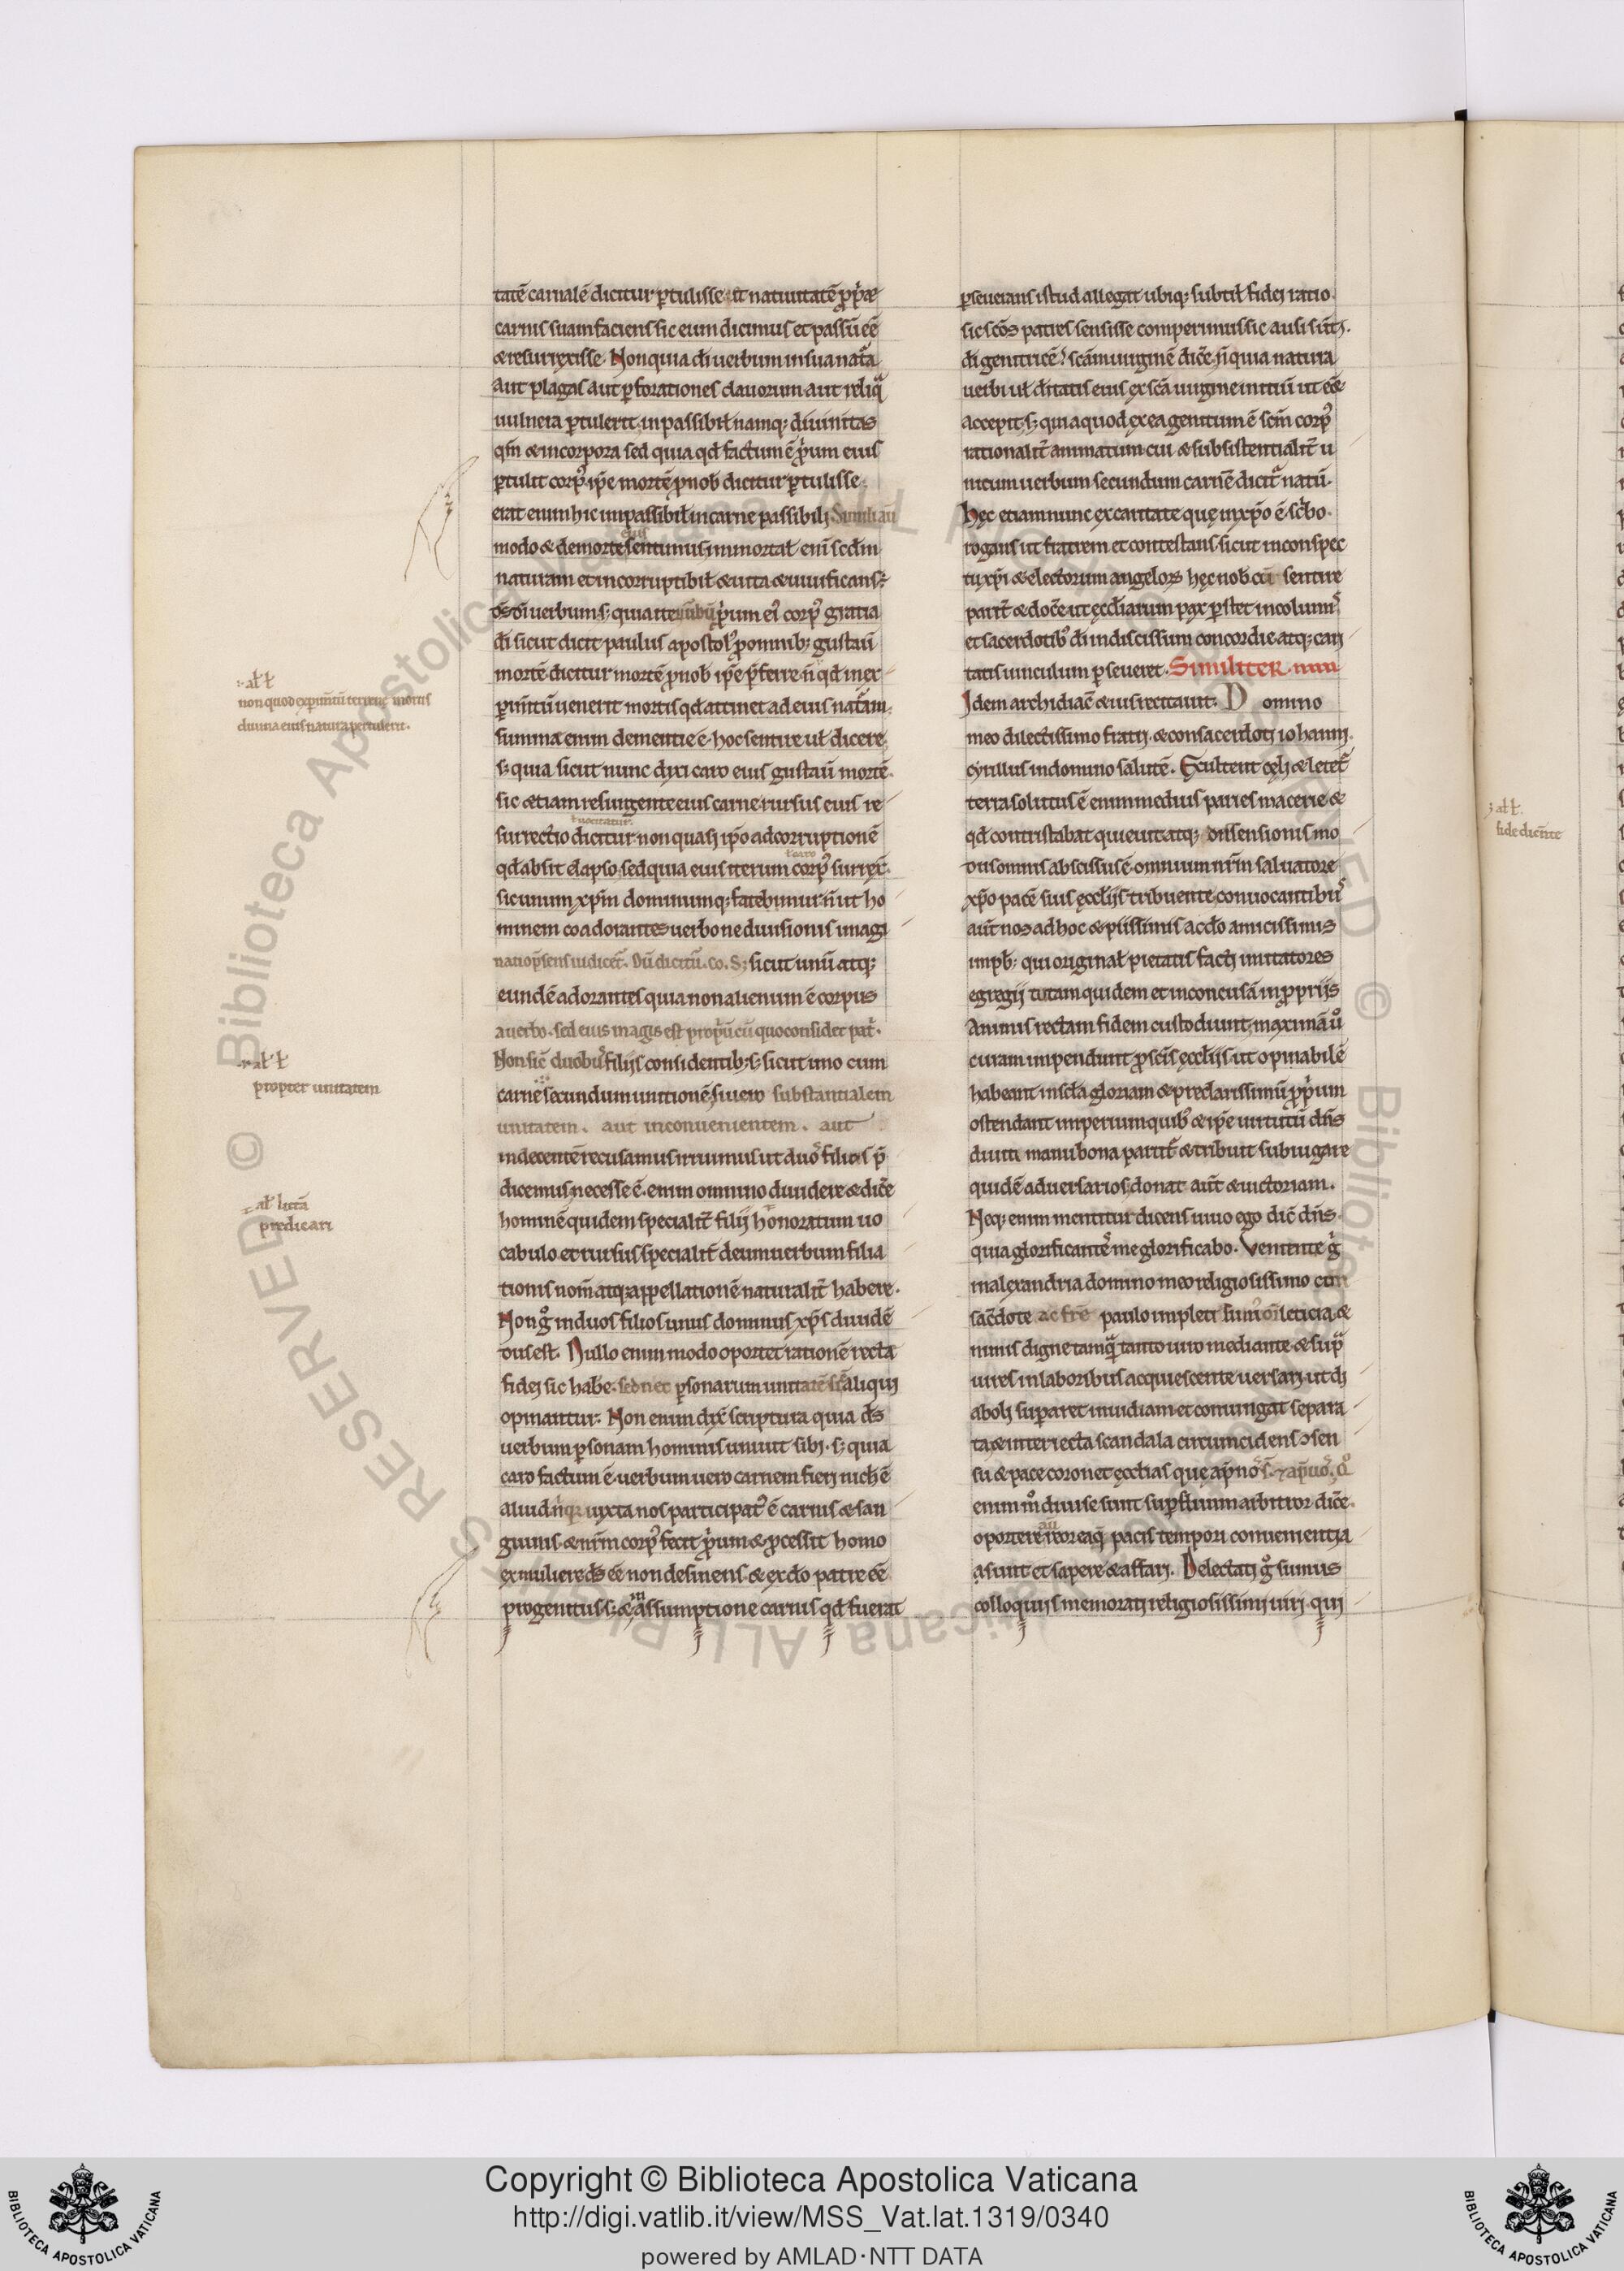 tatē carnalē dicitur ꝑtulisse ut natiuitatē ꝓpͥæ
carnis suam faciens sic eum dicimus et passū eē
& resurrexisse. Non quia d̄i uerbum in sua nat̃a
aut plagas aut ꝑforationes clauorum aut reliqͣ
uulnera ꝑtulerit. inpassibiƚ namq; diuinitas
qm̄ & incorpora sed quia qđ factum ē ꝓpͥum eius
ꝑtulit corpꝰ ip̄e mortē ꝓ nob̄ dicitur ꝑtulisse.
erat enim hic impassibiƚ in carne passibili. Simili aū
eius
modo & de morte sentimus. inmortaƚ enī scđm
naturam et incorruptibiƚ & uita & uiuificans
d̄i uerbum. s; quia ꝓpͥum eiꝰ corpꝰ gratia
d̄i sicut dicit paulus apostolꝰ ꝓ omnib; gustau̅
mortē dicitur mortē ꝓ nob̄ ip̄e ꝑferre. n̄ qđ in ex
ꝑim̄tū uenerit mortis qđ attinet ad eius nat̃am.
:· aƚ ƚ
non quod experim̄tū mortis
diuina eius natura pertulerit.
summa enim dementie ē. hoc sentire uƚ dicere
s; quia sicut nunc dixi caro eius gustau̅ mortē.
sic & iam resurgente eius carne rursus eius re
ƚ uocitatur.
surrectio dicitur. non quasi ip̄o ad corruptionē
ƚ caro
qđ absit elapso. sed quia eius iterum corpꝰ surrex̄.
sic unum xp̄m dominumq; fatebimur. n̄ ut ho
minem coadorantes uerbo ne diuisionis imagi
natio p̄sens iudicet̃. Dū dicitū. co. S; sicut unū atq;
eundē adorantes quia non alienum ē corpus
a uerbo. sed eius magis est propͥū cū quo considet patͥ.
Non sic̄ duobꝰ filijs considentib; s; sicut uno cum
:·· aƚ ƚ
propter unitatem
carne secundum unitionē. si uero substantialem
unitatem. aut inconuenientem. aut
indecentē recusamus irruimus ut duoˢ filios p̄
dicemus. necesse ē. enim omnino diuidere & dic̄e
·– aƚ littā
predicari
hominē quidem specialit̃ filij honoratum uo
cabulo et rursus specialit̃ deum uerbum filia
tionis nom̄ atq; appellationē naturalit̃ habere.
Non gͦ in duos filios unus dominus xp̄s diuidē
dus est. Nullo enim modo oportet rationē recta
fidei sic hab̄e. sed nec ꝑsonarum unitatē aliqui
opinantur. Non enim dix̄ scriptura quia d̄s
uerbum ꝑsonam hominis uniuit sibi. s; quia
caro factum ē uerbum uero carnem fieri nich̄ ē
aliud iuxta nos participatꝰ ē carnis & san
guinis. & nr̄m corpꝰ fecit ꝓpͥum & ꝓcessit homo
ex muliere d̄s eē non desinens & ex d̄o patre eē
progenitus. s; & in assumptione carnis qđ fuerat
ꝑseuerans istud allegat ubiq; subtiƚ fidei ratio.
sic sc̄os patres sensisse comperimus. sic ausi sūt
d̄i genitricē scām uirginē dic̄e. n̄ quia natura
uerbi uƚ d̄itatis eius ex sc̄a uirgine initiū ut eē
accepit. s; quia quod ex ea genitum ē scm̄ corpꝰ
rationalit̃ animatum cui & subsistentialit̃ u
nitum uerbum secundum carnē dicit᷑ natū.
Hęc etiam nunc ex caritate quę in xp̄o ē sc͛bo.
rogans ut fratrem et contestans sicut in conspec
tu xp̄i & electorum angeloꝝ hęc nob̄cū sentire
parit̃ & doc̄e ut ęccl̄iarum pax ꝑstet incolumiˢ
et sacerdotibꝰ d̄i indiscissum concordie atq; cari
tatis uinculum ꝑseueret. SIMILITER. IIIII
Idem archidiac̄ & ius recitauit. D omino
meo dilectissimo fratri. & consacerdoti iohanni.
cyrillus in domino salutē. Exultent cęli & letet᷑
terra solutus ē enim medius paries macerie &
qđ contristabat quieuit atq; dissensionis mo
dus omnis abscissus ē. omnium nr̄m saluatore
xp̄o pacē suis ęccl̄ijs tribuente. conuocantibuˢ
aūt nos ad hoc & pijssimis ac d̄o amicissimis
impb̄; qui originaƚ pietatis facti imitatores
egregij tutam quidem et inconcussā in ꝓprijs
animis rectam fidem custodiunt. maximā ů
curam impendunt ꝓ sc̄is ęccl̄ijs ut opinabilē
habeant in scła gloriam & preclarissimū ꝓpͥum
ostendant imperium quibꝰ & ip̄e uirtutū dn̄s
diuiti manu bona partit̃ & tribuit subiugare
quidē aduersarios. donat aūt & uictoriam.
Neq; enim mentitur dicens uiuo ego dic̄ dn̄s.
quia glorificanteˢ me glorificabo. Veniente gͥ
in alexandria domino meo religiosissimo con
sac̄dote ac fr̄e paulo impleti sumꝰ oi̅ leticia. &
nimis digne tamqͣ tanto uiro mediante. & supͣ
uires in laboribus acquiescente uersari. ut di
aboli suꝑaret inuidiam et coniungat separa
ta. & interiecta scandala circumcidens ↄsen
su & pace coronet ęccl̄ias que ap̄ noˢ s̄. & ap̄ uoˢ. Qͦ
enim mͦ diuise sunt suꝑfluum arbitror dic̄e.
oportere reor eaq; pacis tempori conuenientia
asunt et sapere & affari. Delectati gͦ sumus
colloquijs memorati religiosissimi uiri. qui
aƚ ƚ.
fide dicn̄te
Copyright © Biblioteca Apostolica Vaticana
http://digi.vatlib.it/view/MSS_Vat.lat.1319/0340
powered by AMLAD·NTT DATA
BIBLIOTECA APOSTOLICA VATICANA
BIBLIOTECA APOSTOLICA VATICANA
© Biblioteca Apostolica Vaticana ALL RIGHTS RESERVED